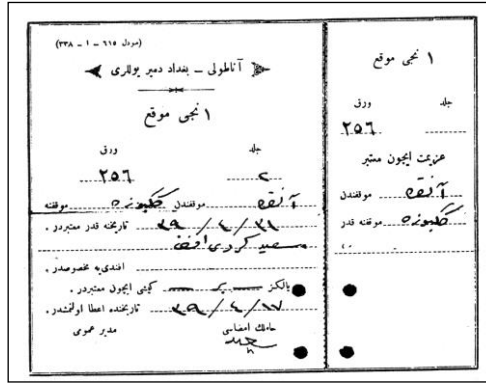 (مودل ٦١٥ – ١ – ٣٣٨)
آناطولی – بغداد دمیر یوللری
١ نجی موقع
جلد ورق
٢ ٢٥٦
آنقره موقفندن گکبوزه موقفنه
٣٩/٤/٣١ تاریخنه قدر معتبردر .
سعید کردی افندی
افندی‌یه مخصوصدر .
یالکز بر کیشی ایچون معتبردر .
٣٩/٤/١٧ تاریخنده اعطا اولنمشدر .
حاملك امضاسی مدیر عمومی
سعید
١ نجی موقع
جلد ورق
٢٥٦
عزیمت ایچون معتبر
آنقره موقفندن
گکبوزه موقفنه قدر